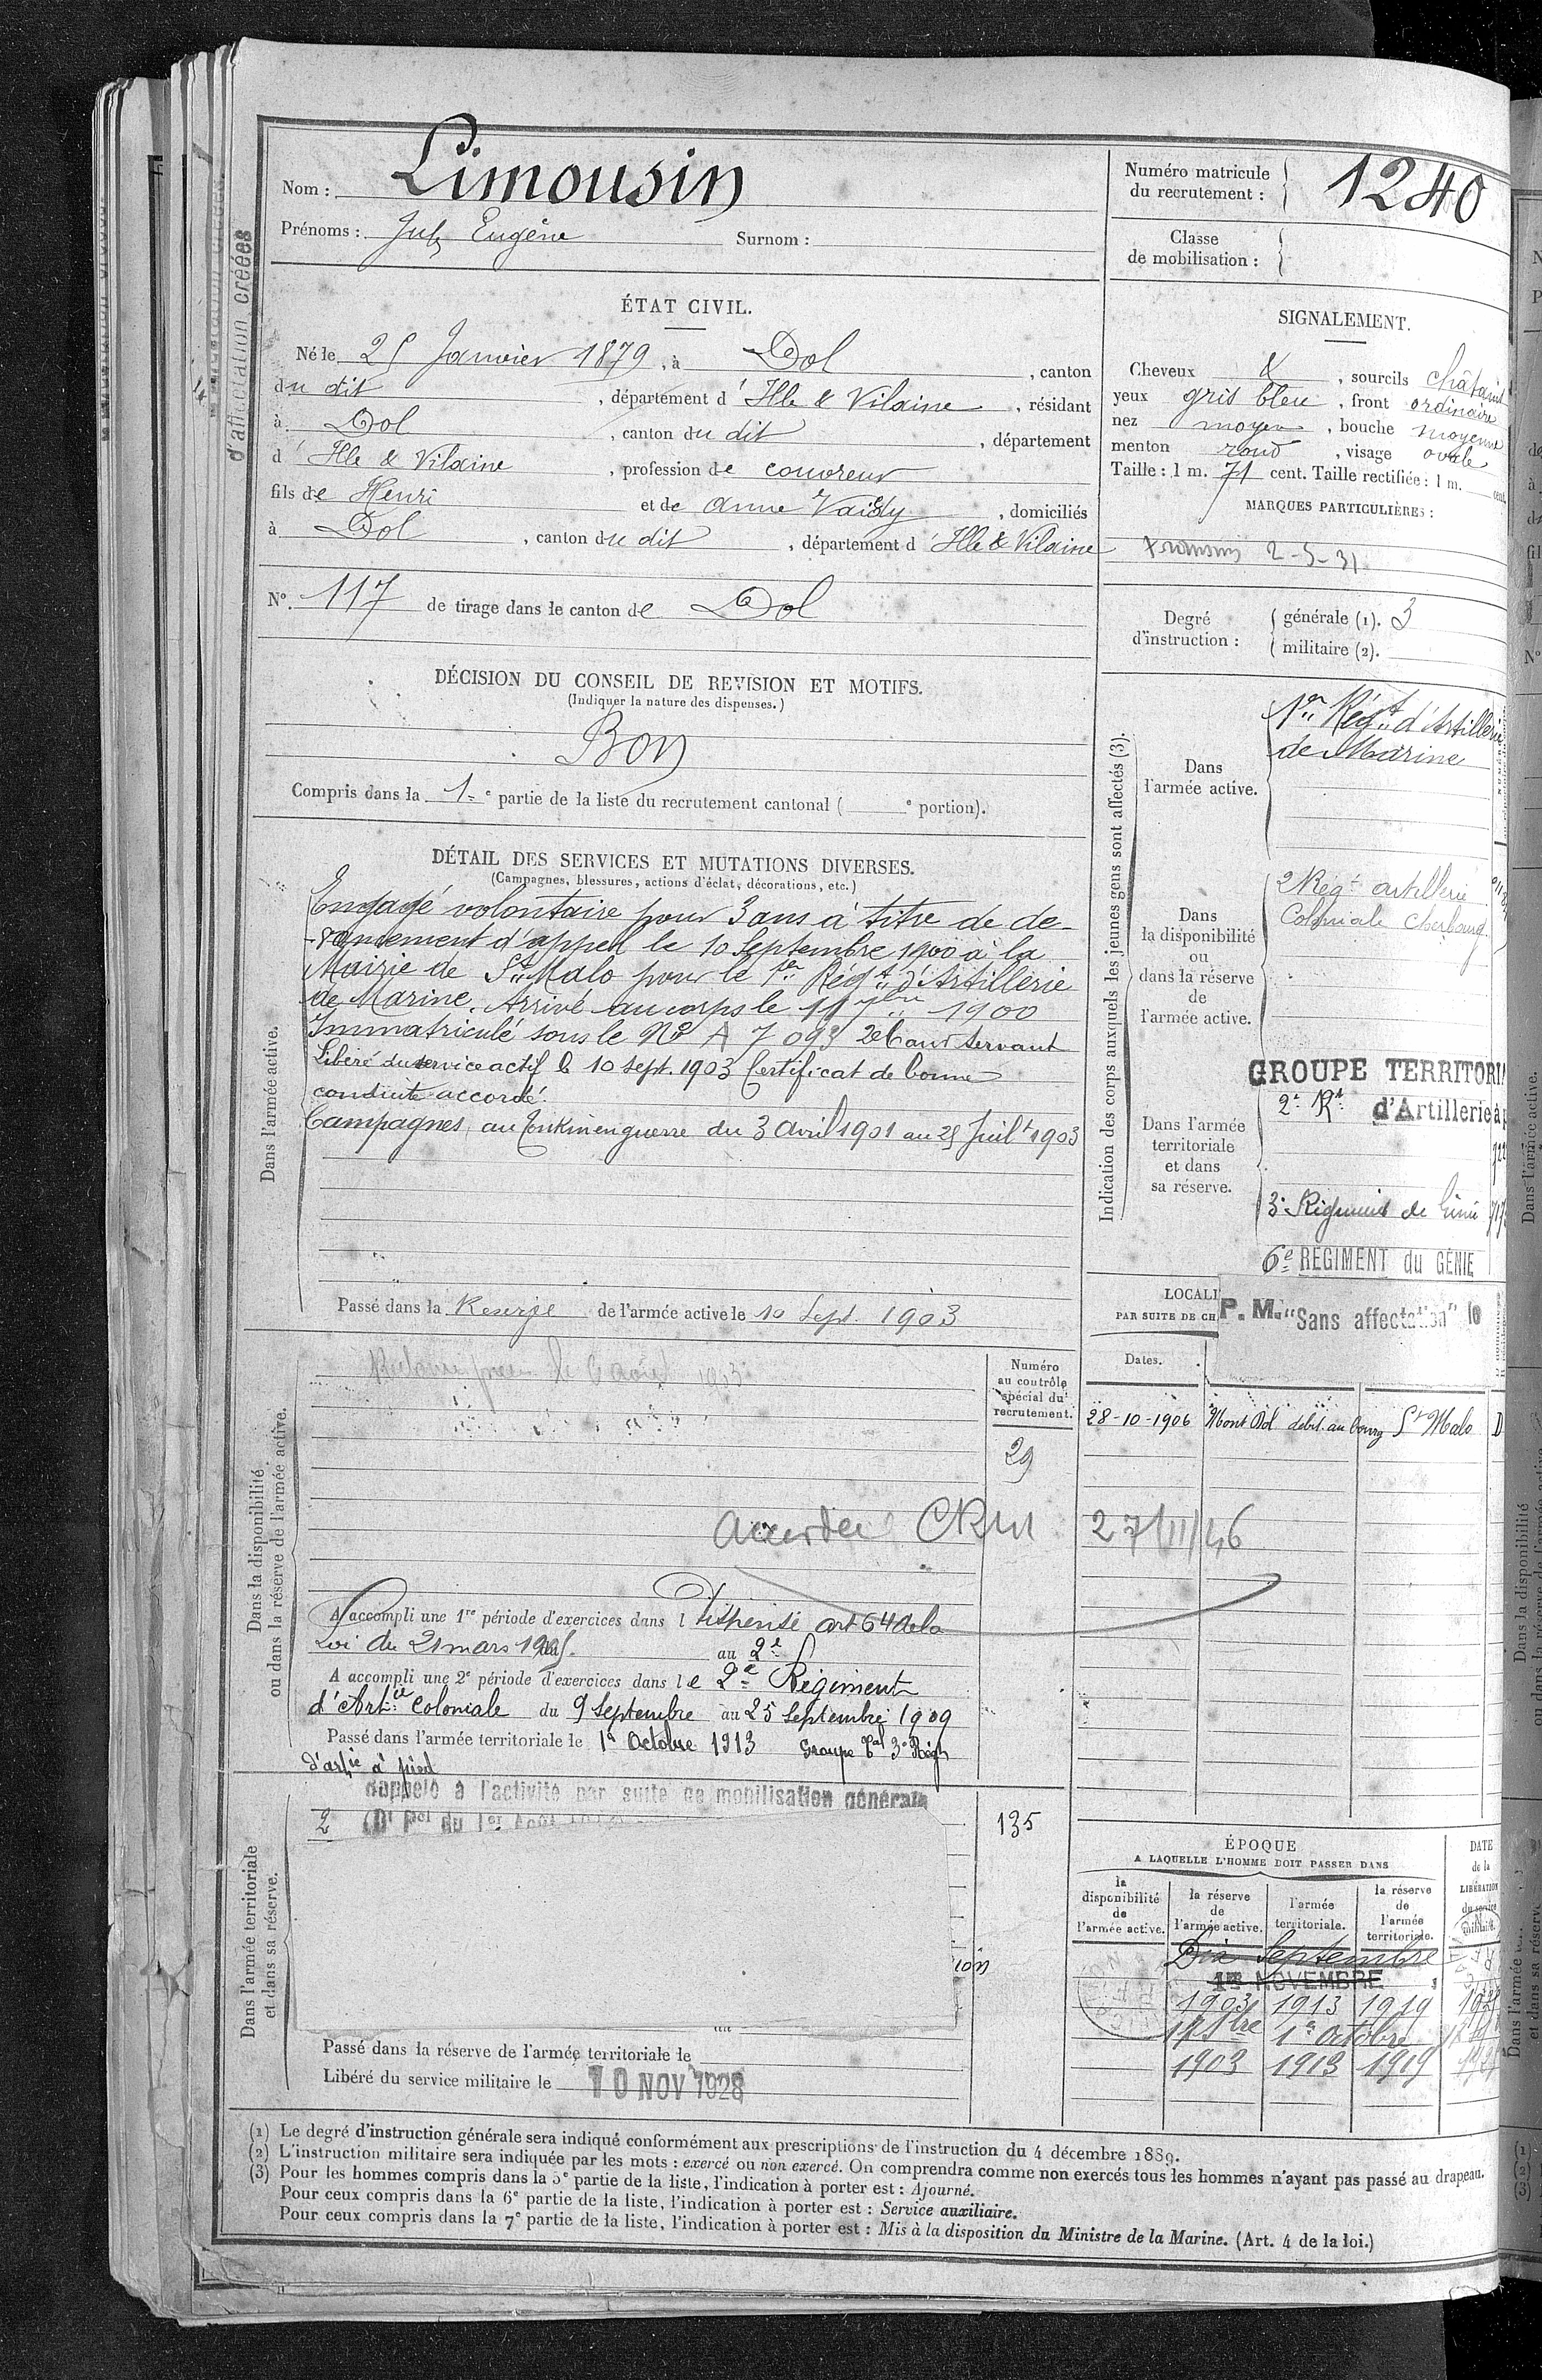 d'affectation créées
Nom : Limousin
Prénoms : Jules Eugène Surnom :
Numéro matricule
du recrutement : 1240
Classe
de mobilisation :
ÉTAT CIVIL.
Né le 25 Janvier 1879, à Dol, canton
du dit, département d'Ille & Vilaine, résidant
à Dol, canton du dit, département
d'Ille & Vilaine, profession de couvreur
fils de Henri et de Anne, domiciliés
à Dol, canton du dit, département d'Ille & Vilaine
N° 117 de tirage dans le canton de Dol
SIGNALEMENT.
Cheveux &, sourcils châtains
yeux gris bleu, front ordinaire
nez moyen, bouche moyenne
menton rond, visage ovale
Taille : 1 m. 71 cent. Taille rectifiée : 1 m. cent.
MARQUES PARTICULIÈRES :
2-5-31
Degré
d'instruction : générale (1). 3
militaire (2).
DÉCISION DU CONSEIL DE REVISION ET MOTIFS.
(Indiquer la nature des dispenses.)
Bon
Compris dans la 1e partie de la liste du recrutement cantonal ( e portion).
DÉTAIL DES SERVICES ET MUTATIONS DIVERSES.
(Campagnes, blessures, actions d'éclat, décorations, etc.)
Dans l'armée active.
Engagé volontaire pour 3 ans à titre de de-
-vancement d'appel le 10 Septembre 1900 à la
Mairie de St Malo pour le 1er Régt d'Artillerie
de Marine. Arrivé au corps le 11 7bre 1900
Immatriculé sous le N° A 7093 2e Can Servant
Libéré du service actif le 10 sept. 1903 Certificat de bonne
conduite accordé.
Campagnes au Tonkin en guerre du 3 avril 1901 au 25 Juilt 1903
Passé dans la Réserve de l'armée active le 10 Sept. 1903
Indication des corps auxquels les jeunes gens sont affectés (3).
Dans
l'armée active.
1er Régt d'Artillerie
de Marine
Dans
la disponibilité
ou
dans la réserve
de
l'armée active.
2 Régt artillerie
Coloniale Cherbourg
Dans l'armée
territoriale
et dans
sa réserve.
GROUPE TERRITORIA
2e Rt d'Artillerie à p
3e Régiment de Génie
6e REGIMENT du GÉNIE
P. M. "Sans affectation" le
LOCALI
PAR SUITE DE CH
Dates.
28-10-1906 Mont Dol débit. au bourg St Malo D
Dans la disponibilité
ou dans la réserve de l'armée active.
le 6 août 1903
Numéro
au contrôle
spécial du
recrutement.
29
accordée CRM 27/11/46
A accompli une 1re période d'exercices dans l Dispensé art 64 de la
Loi du 21 mars 1905. au 2e
A accompli une 2e période d'exercices dans le 2e Régiment
d'Artie Coloniale du 9 Septembre au 25 Septembre 1909
Passé dans l'armée territoriale le 1er Octobre 1913 Groupe Tal 3e Régt
d'artie à pied
Dans l'armée territoriale
et dans sa réserve.
Rappelé à l'activité par suite de mobilisation générale
2 (Dt Pel du 1er Août
135
ion
Passé dans la réserve de l'armée territoriale le
Libéré du service militaire le 10 NOV 1928
ÉPOQUE
A LAQUELLE L'HOMME DOIT PASSER DANS
la
disponibilité
de
l'armée active.
la réserve
de
l'armée active.
l'armée
territoriale.
la réserve
de
l'armée
territoriale.
DATE
de la
LIBÉRATION
du service
militaire.
Dix Septembre
1er NOVEMBRE
1903 1913 1919
1er Octobre
1903 1913 1919
(1) Le degré d'instruction générale sera indiqué conformément aux prescriptions de l'instruction du 4 décembre 1889.
(2) L'instruction militaire sera indiquée par les mots : exercé ou non exercé. On comprendra comme non exercés tous les hommes n'ayant pas passé au drapeau.
(3) Pour les hommes compris dans la 5e partie de la liste, l'indication à porter est : Ajourné.
Pour ceux compris dans la 6e partie de la liste, l'indication à porter est : Service auxiliaire.
Pour ceux compris dans la 7e partie de la liste, l'indication à porter est : Mis à la disposition du Ministre de la Marine. (Art. 4 de la loi.)